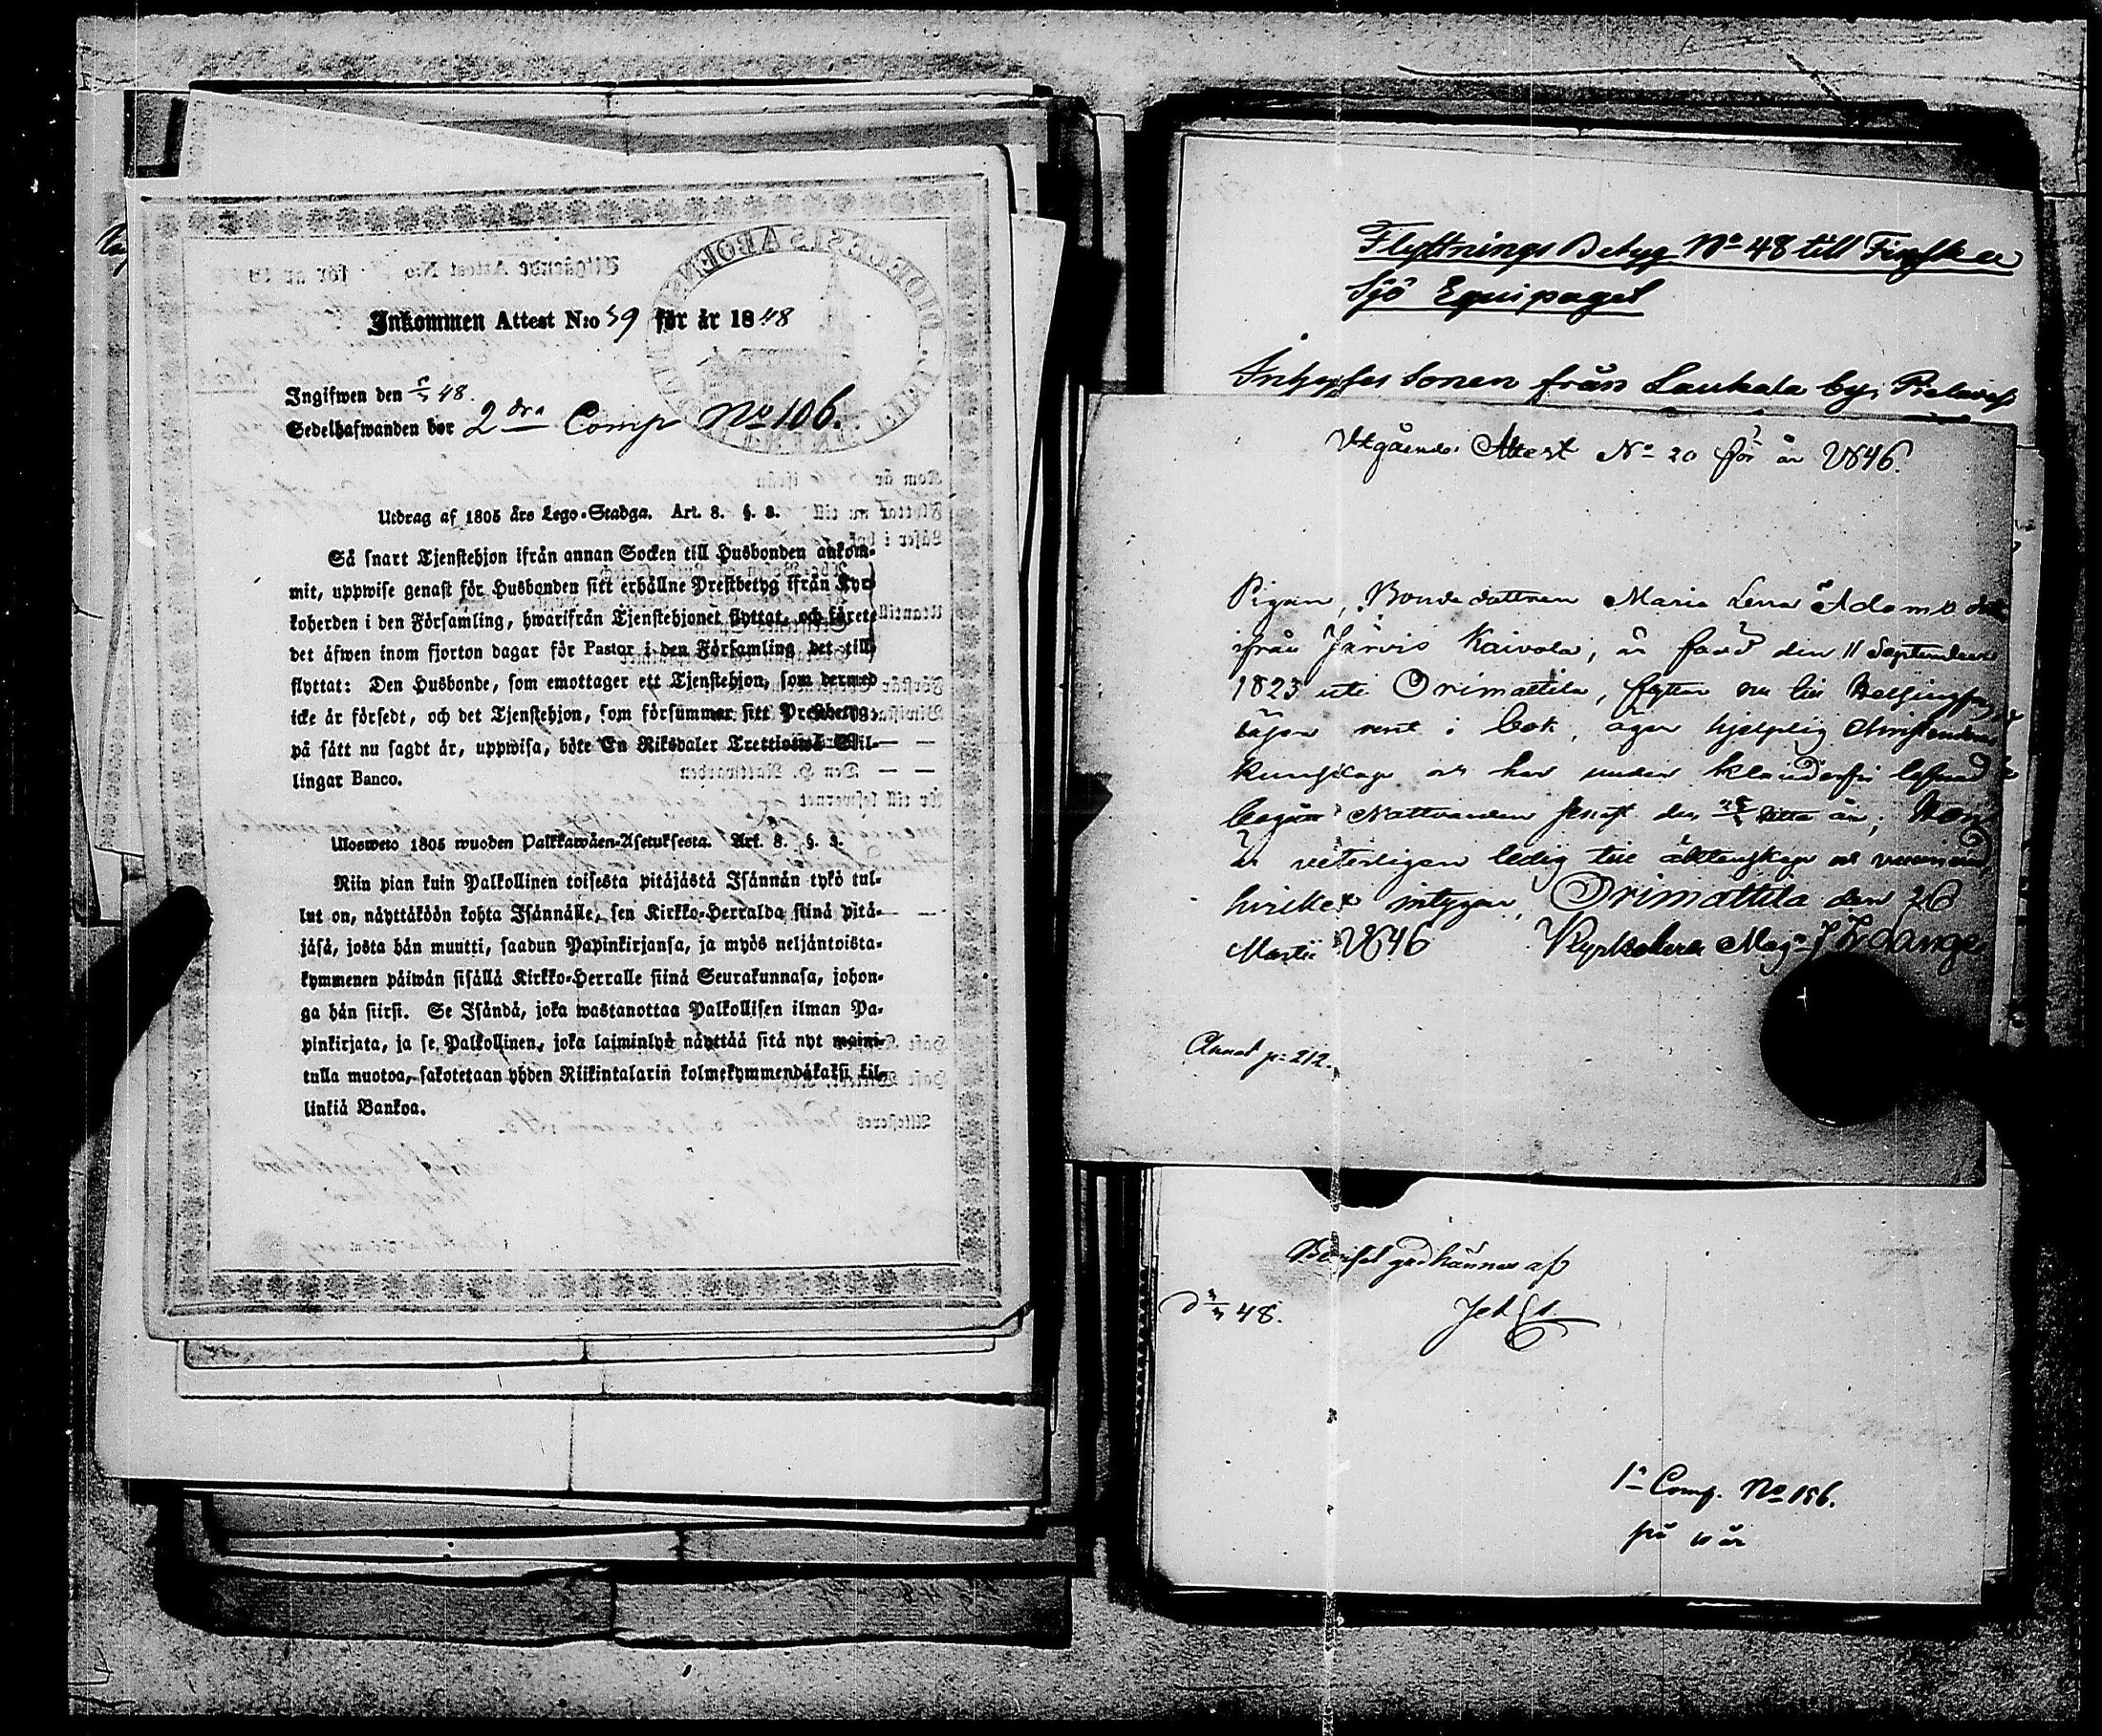 Inkommen Attest N:o 39 för år 1848
Ingifwen den 48.
Sedelhafwanden bor 2dra Comp No 106.
Utdrag af 1805 års Lego-Stadga. Art. 8. §. 8.
Så snart Tjenstehjon ifrån annan Socken till Husbonden ankom-
mit, uppwise genast för Husbonden sitt erhållne Prestbetyg ifrån Kyr-
koherden i den Församling, hwarifrån Tjenstehjonet flyttat, och förete
det äfwen inom fjorton dagar för Pastor i den Församling det till-
flyttat: Den Husbonde, som emottager ett Tjenstehjon, som dermed
icke är försedt, och det Tjenstehjon, som försummar sitt Prestbetyg,
på sätt nu sagdt är, uppwisa, böte En Riksdaler Trettiotwå Skil-
lingar Banco.
Ulosweto 1805 wuoden Palkkawäen-Asetuksesta. Art. 8. §. 3.
Niin pian kuin Palkollinen toisesta pitäjästä Isännän tykö tul-
lut on, näyttäköön kohta Isännälle, sen Kirkko-Herralda siinä pitä-
jäsä, josta hän muutti, saadun Papinkirjansa, ja myös neljäntoista-
kymmenen päiwän sisällä Kirkko-Herralle siinä Seurakunnasa, johon-
ga hän siirsi. Se Isändä, joka wastanottaa Palkollisen ilman Pa-
pinkirjata, ja se Palkollinen, joka laiminlyö näyttää sitä nyt maini-
tulla muotoa, sakotetaan yhden Riikintalarin kolmekymmendäkaksi kil-
linkiä Bankoa.
Flyttnings Betyg No 48 till Finska
Sjö Equipaget
Inhyses sonen från Laukala by,
Utgående Attest No 20 för år 1846.
Pigan, Bondedottren Maria Lena Adamsdotter
ifrån Järvis Kaivola, är född den 11 September
1823 uti Orimattila, flyttar nu till Helsingfors,
läser rent i bok, äger hjelplig Christendoms
kunskap och har under klanderfri lefnad
begått Nattvarden senast den detta år; Hon
är veterligen ledig till äktenskap och
hvilket intygar, Orimattila den 26
Martii 1846
Annot p: 212.
godkännes af
d 48.
1a Comp. No 186.
på 10 år